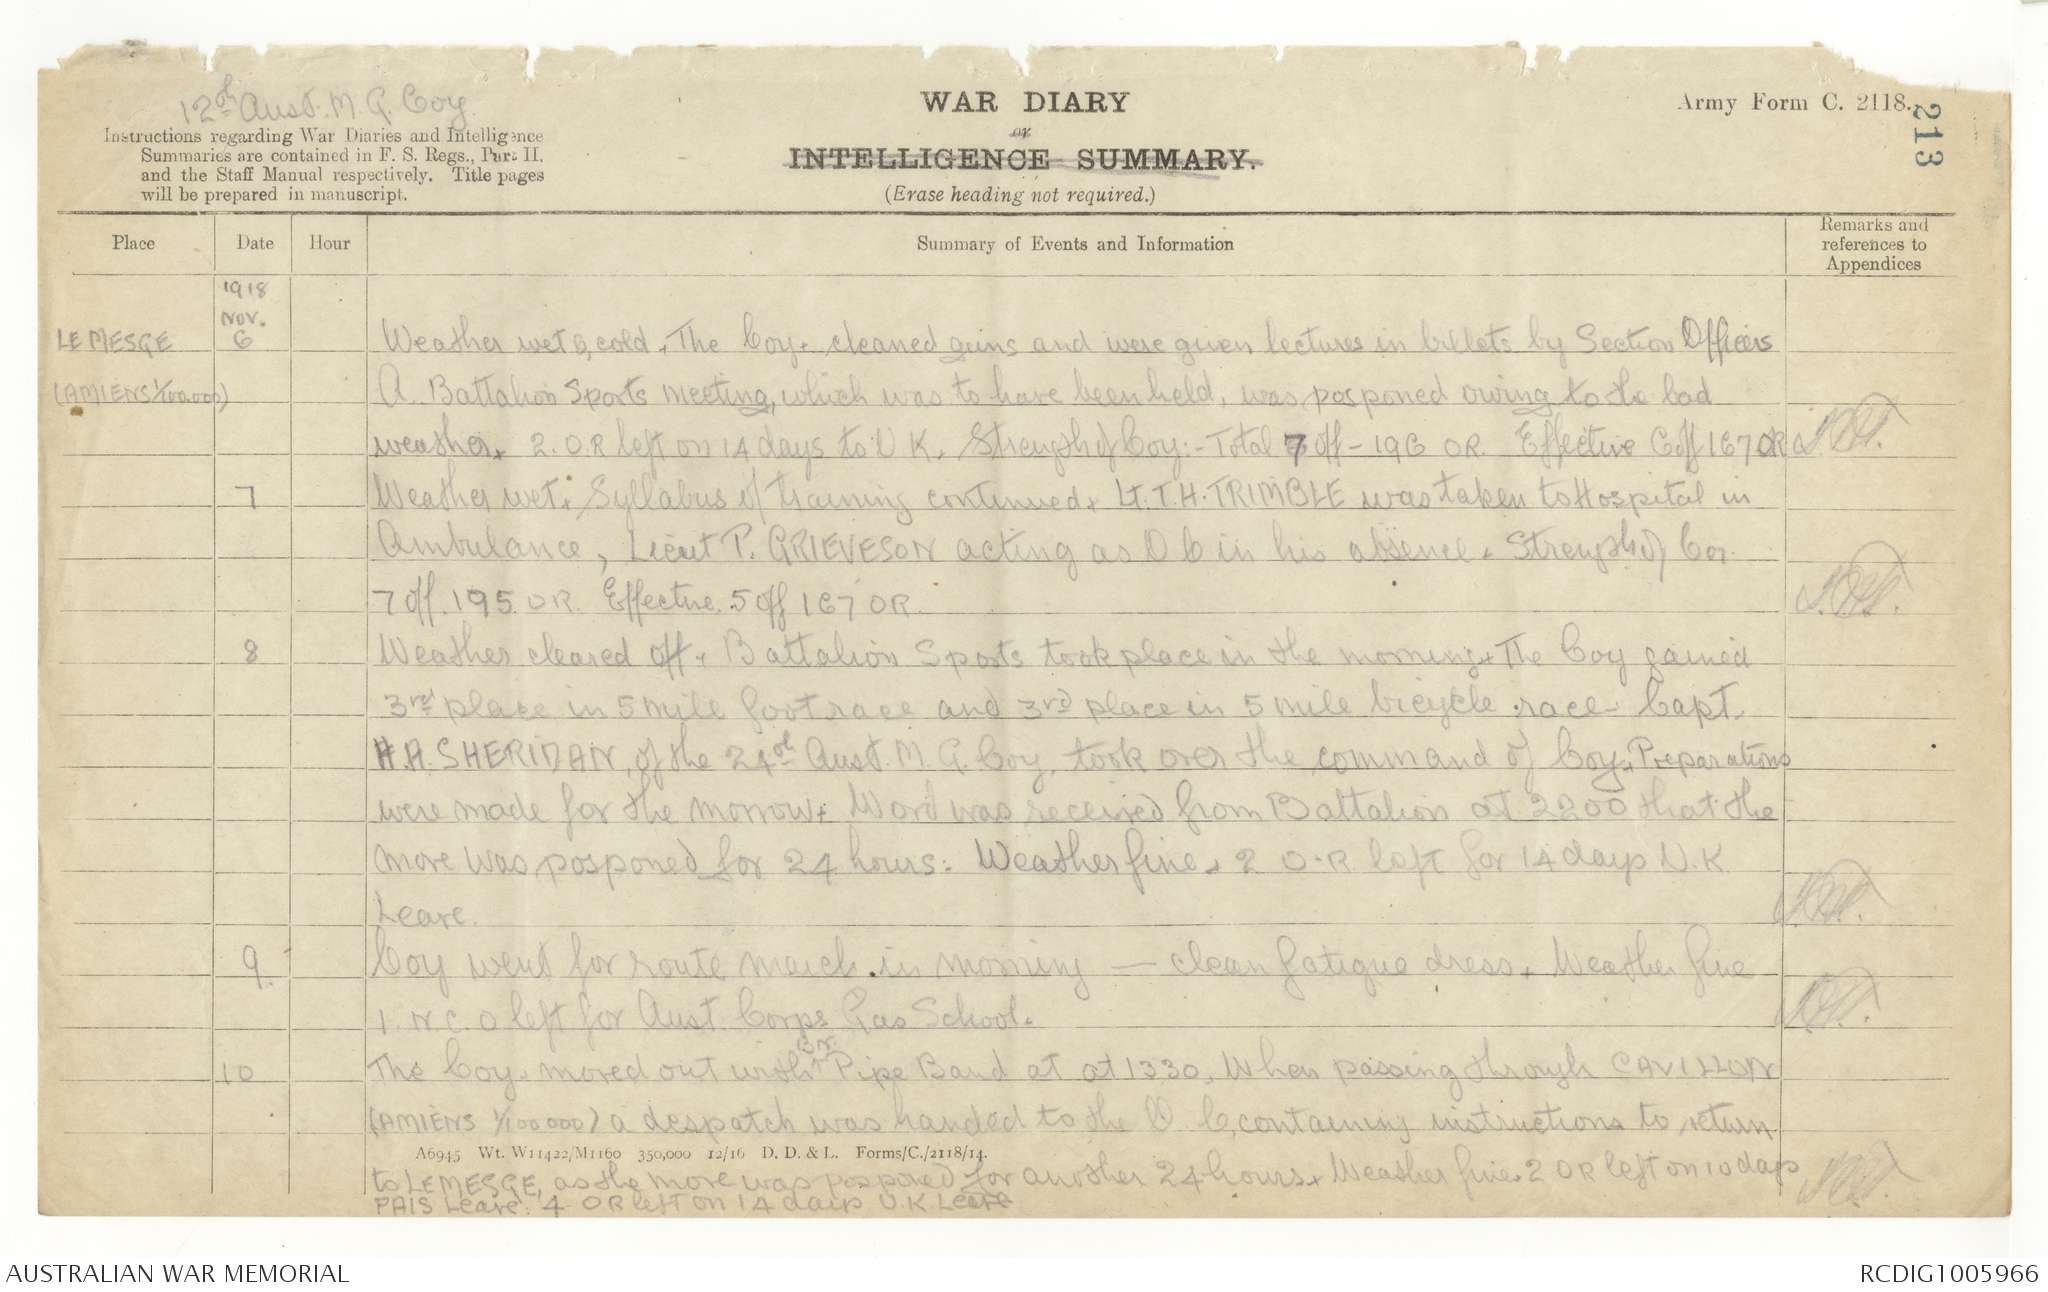 12th Aust. M. G. Coy.
Instructions regarding War Diaries and Intelligence
Summaries are contained in F. S. Regs., Part II.
and the Staff Manual respectively. Title pages
will be prepared in manuscript.
WAR DIARY
or
INTELLIGENCE SUMMARY.
(Erase heading not required.)
Army Form C. 2118.
213
Place
Date
Hour
Summary of Events and Information
Remarks and
references to
Appendices
1918
NOV.
LE MESGE 6 Weather wet & cold. The Coy. cleaned guns and were given lectures in billets by Section Officers
(AMIENS 1/100.000) A Battalion Sports Meeting, which was to have been held, was postponed owing to the bad
weather. 2. O.R left on 14 days to U K. Strength of Coy:- Total 7 off - 196 OR. Effective 6 off 167 OR
7 Weather wet. Syllabus of training continued. Lt. T.H. TRIMBLE was taken to Hospital in
Ambulance, Lieut P. GRIEVESON acting as O C in his absence. Strength of Coy.
7 off. 195 OR. Effective. 5 off 167 OR.
8 Weather cleared off. Battalion Sports took place in the morning. The Coy gained
3rd place in 5 mile foot race and 3rd place in 5 mile bicycle race. Capt.
H.A. SHERIDAN, of the 24th Aust. M. G. Coy, took over the command of Coy. Preparations
were made for the morrow. Word was received from Battalion at 2200 that the
move was posponed for 24 hours. Weather fine. 2 O.R. left for 14 days U.K
Leave.
9 Coy went for route march in morning — clean fatigue dress. Weather fine
1. N.C.O left for Aust. Corps Gas School.
Bn.
10 The Coy. moved out with Pipe Band at at 1330. When passing through CAVILLON
(AMIENS 1/100000) a despatch was handed to the O. C, containing instructions to return
A6945 Wt. W11422/M1160 350,000 12/16 D. D. & L. Forms/C./2118/14.
to LE MESGE, as the move was posponed for another 24 hours. Weather fine. 2 OR left on 10 days
PAIS Leave. 4 OR left on 14 days U.K Leave
AUSTRALIAN WAR MEMORIAL
RCDIG1005966